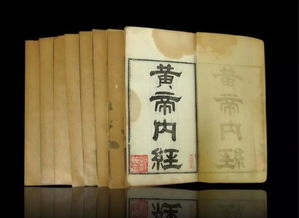 黃帝內經
黃帝內經